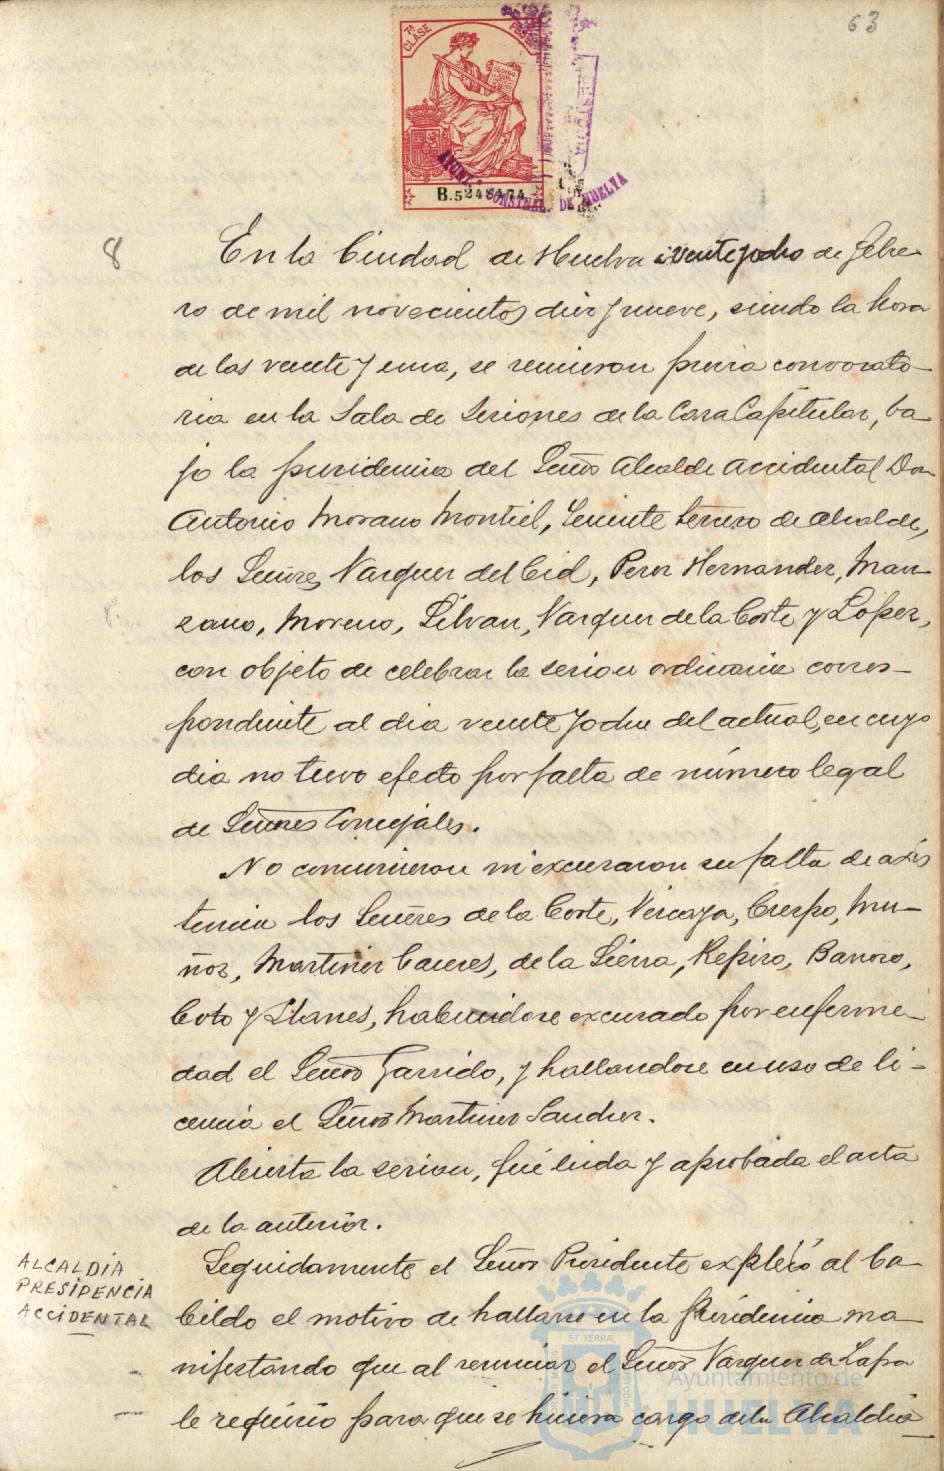 63
7ª CLASE
B.5246474
AYUNT. CONSTNAL. DE HUELVA
8
En la Ciudad de Huelva a veintiyocho de Febre-
ro de mil novecientos diez y nueve, siendo la hora
de las veinte y una, se reunieron previa convocato-
ria en la Sala de Sesiones de la Casa Capitular, ba-
jo la presidencia del Señor Alcalde accidental Don
Antonio Morano Montiel, Teniente tercero de alcalde,
los Señores Vazquez del Cid, Perez Hernandez, Man-
zano, Moreno, Silvan, Vazquez de la Corte y Lopez,
con objeto de celebrar la sesion ordinaria corres-
pondiente al dia veinte y del actual, en cuyo
dia no tuvo efecto por falta de número legal
de Señores Concejales.
No concurrieron ni excusaron su falta de asis
tencia los Señores de la Corte, Vizcaya, Crespo, Mu-
ñoz, Martinez Caceres, de la Sierra, Repiso, Barroso,
Coto y Llanes, habiendose excusado por enferme-
dad el Señor Garrido, y hallandose en uso de li-
cencia el Señor Martinez Sanchez.
Abierta la sesion, fué leida y aprobada el acta
de la anterior.
ALCALDIA
PRESIDENCIA
ACCIDENTAL
Seguidamente el Señor Presidente explicó al Ca-
bildo el motivo de hallarse en la presidencia ma-
nifestando que al renunciar el Señor Vazquez de Zafra
le requirió para que se hiciera cargo de la Alcaldia
Ayuntamiento de
HUELVA